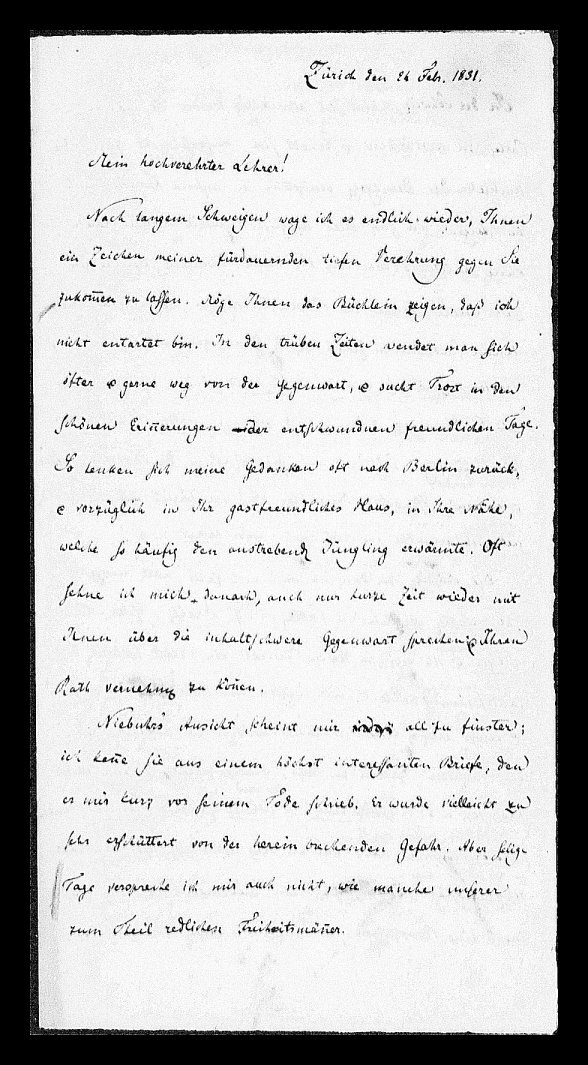 Zürich den 26 Febr. 1831.
Mein hochverehrter Lehrer!
Nach langem Schweigen wage ich es endlich wieder, Ihnen
ein Zeichen meiner fürdauernden tiefen Verehrung gegen Sie
zukom̄en zu lassen. Möge Ihnen das Büchlein zeigen, daß ich
nicht entartet bin. In den trüben Zeiten wendet man sich
öfter & gerne weg von der Gegenwart, & sucht Trost in den
schönen Erin̄erungen der entschwundnen freundlichen Tage.
So lenken sich meine Gedanken oft nach Berlin zurück,
& vorzüglich in Ihr gastfreundliches Haus, in Ihre Nähe,
welche so häufig den anstrebend Jüngling erwärmte. Oft
sehne ich mich danach, auch nur kurze Zeit wieder mit
Ihnen über die inhaltschwere Gegenwart sprechen & Ihren
Rath vernehmen zu kön̄en.
Niebuhrs Ansicht scheint mir all zu finster;
ich ken̄e sie aus einem höchst interessanten Briefe, den
er mir kurz vor seinem Tode schrieb. Er wurde vielleicht zu
sehr erschüttert von der herein brechenden Gefahr. Aber selige
Tage verspreche ich mir auch nicht, wie manche unserer
zum Theil redlichen Freiheitsmän̄er.